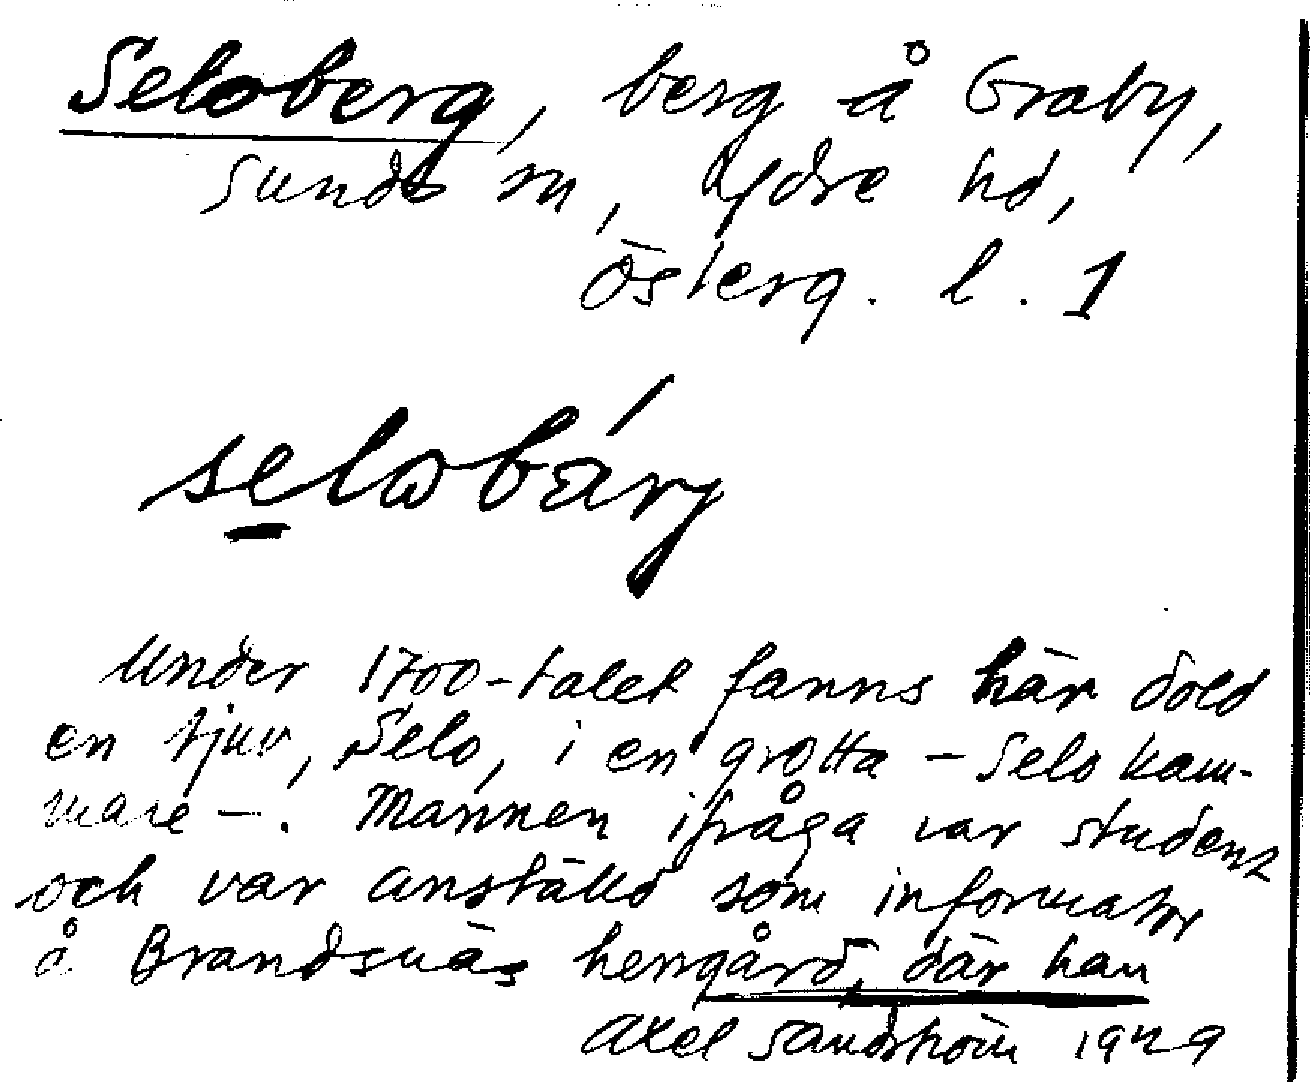 Seloberg, berg å Graby,
Sunds sn, Ydre hd,
Österg. l. 1
selobárj
Under 1700-talet fanns här dold
en tjuv, Selo, i en grotta – Selo kam-
mare –. Mannen ifråga var student
och var anställd som informator
å Brandsnäs herrgård, där han
Axel Sandström 1929